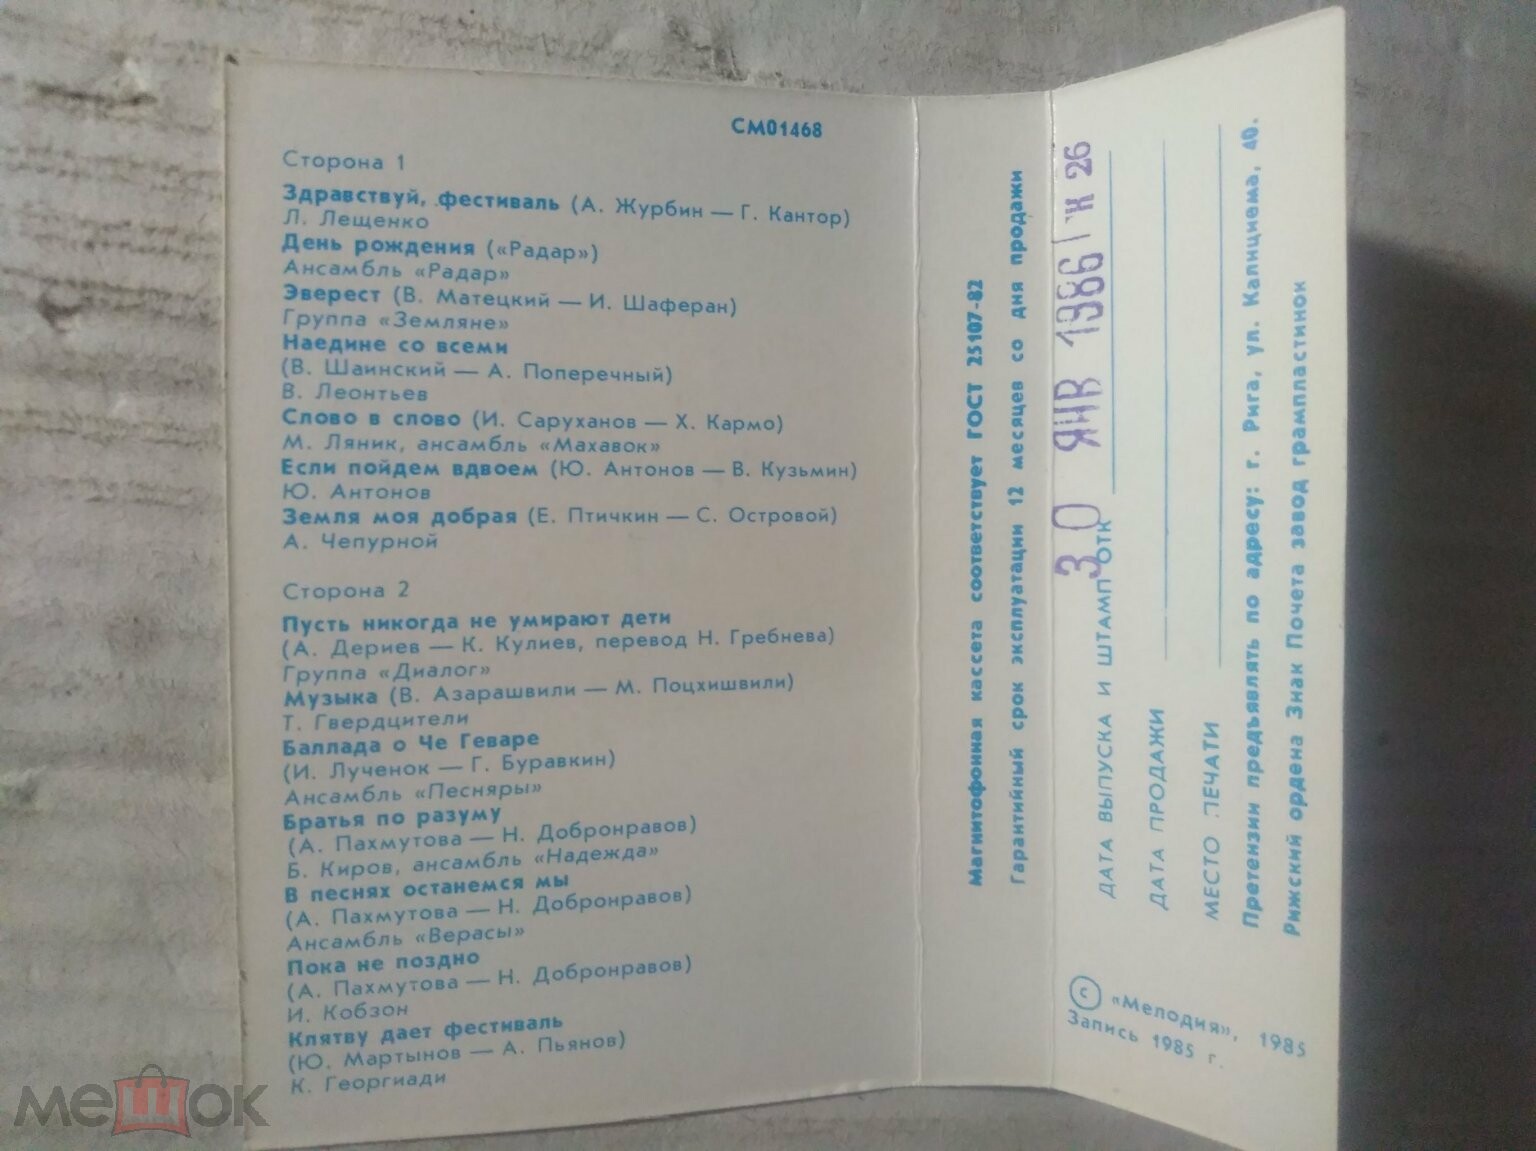 СМ01468
Сторона 1
Здравствуй, фестиваль (А. Журбин — Г. Кантор)
Л. Лещенко
День рождения («Радар»)
Ансамбль «Радар»
Эверест (В. Матецкий — И. Шаферан)
Группа «Земляне»
Наедине со всеми
(В. Шаинский — А. Поперечный)
В. Леонтьев
Слово в слово (И. Саруханов — Х. Кармо)
М. Ляник, ансамбль «Махавок»
Если пойдем вдвоем (Ю. Антонов — В. Кузьмин)
Ю. Антонов
Земля моя добрая (Е. Птичкин — С. Островой)
А. Чепурной
Сторона 2
Пусть никогда не умирают дети
(А. Дериев — К. Кулиев, перевод Н. Гребнева)
Группа «Диалог»
Музыка (В. Азарашвили — М. Поцхишвили)
Т. Гвердцители
Баллада о Че Геваре
(И. Лученок — Г. Буравкин)
Ансамбль «Песняры»
Братья по разуму
(А. Пахмутова — Н. Добронравов)
Б. Киров, ансамбль «Надежда»
В песнях останемся мы
(А. Пахмутова — Н. Добронравов)
Ансамбль «Верасы»
Пока не поздно
(А. Пахмутова — Н. Добронравов)
И. Кобзон
Клятву дает фестиваль
(Ю. Мартынов — А. Пьянов)
К. Георгиади
Магнитофонная кассета соответствует ГОСТ 25107-82
Гарантийный срок эксплуатации 12 месяцев со дня продажи
30 ЯНВ 1986 26
ДАТА ВЫПУСКА И ШТАМП ОТК
ДАТА ПРОДАЖИ
МЕСТО ПЕЧАТИ
Претензии предъявлять по адресу: г. Рига, ул. Калнциема, 40.
Рижский ордена Знак Почета завод грампластинок
© «Мелодия», 1985
Запись 1985 г.
мешок